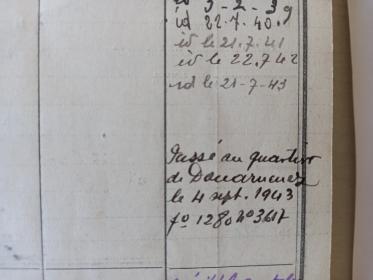 id 3-2-39
id 22.7.40
id le 21.7.41
id le 22.7.42
id le 21-7-43
Passé au quartier
de Douarnenez
le 4 sept. 1943
fº 1280 nº 3617